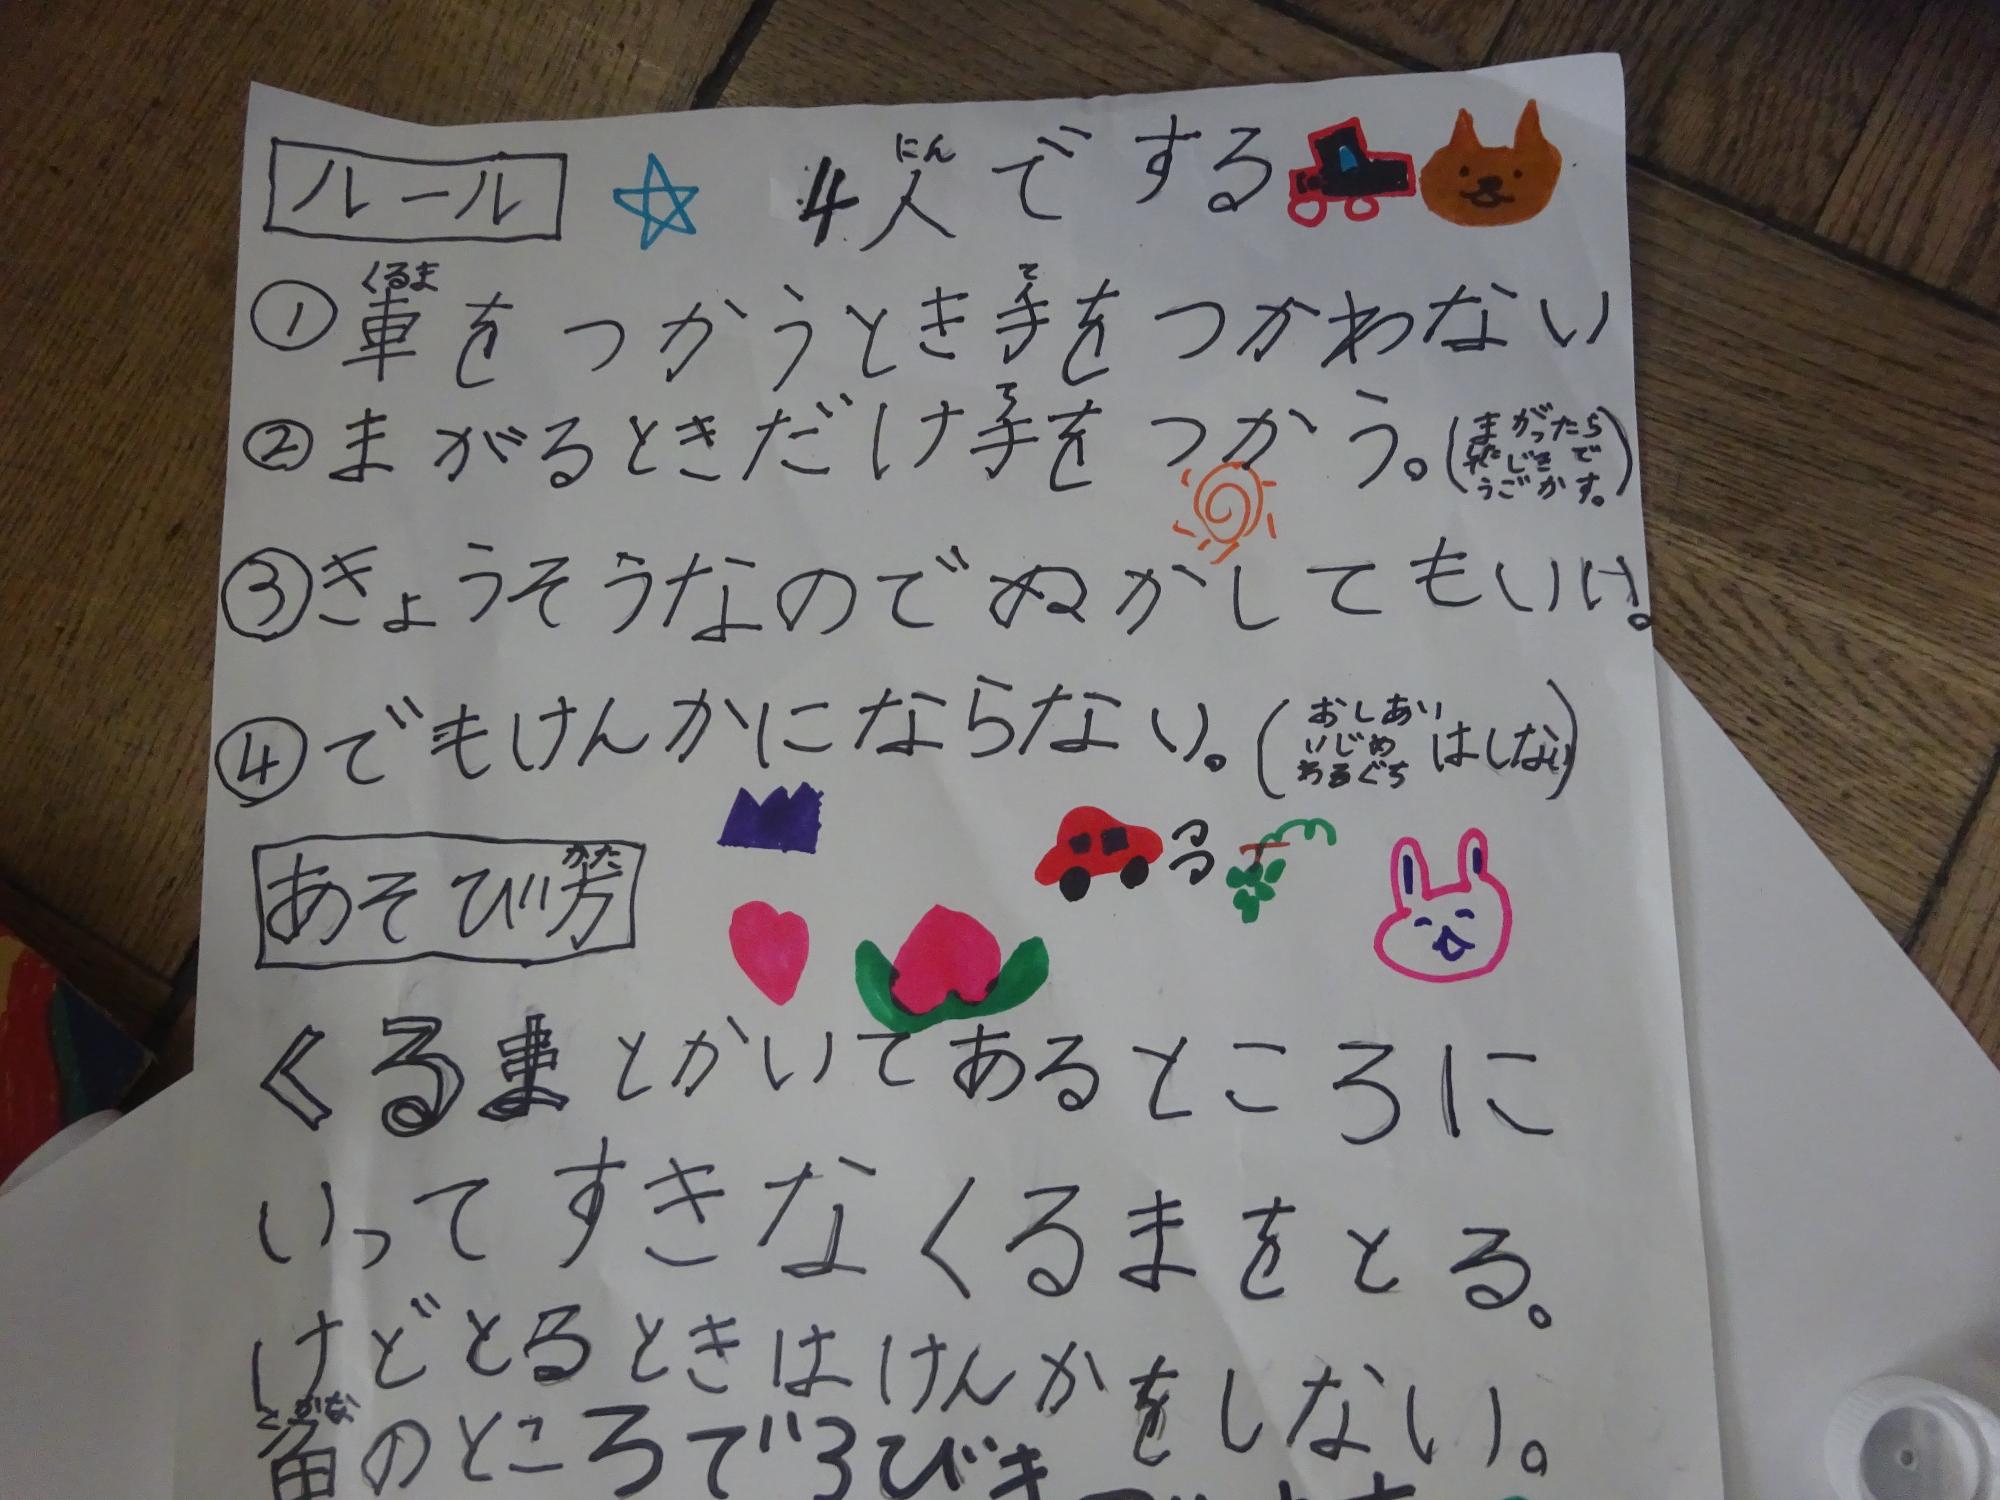 ルール 4人でする
にん
くるま て
①車をつかうとき手をつかわない
て
②まがるときだけ手をつかう。(まがったら
じきで
うごかす。)
③きょうそうなのでぬかしてもいい。
④でもけんかにならない。(おしあい
いじめ はしない)
わるぐち
かた
あそび方
くるまとかいてあるところに
いってすきなくるまをとる。
けどとるときはけんかをしない。
さかな
魚のところで3びき